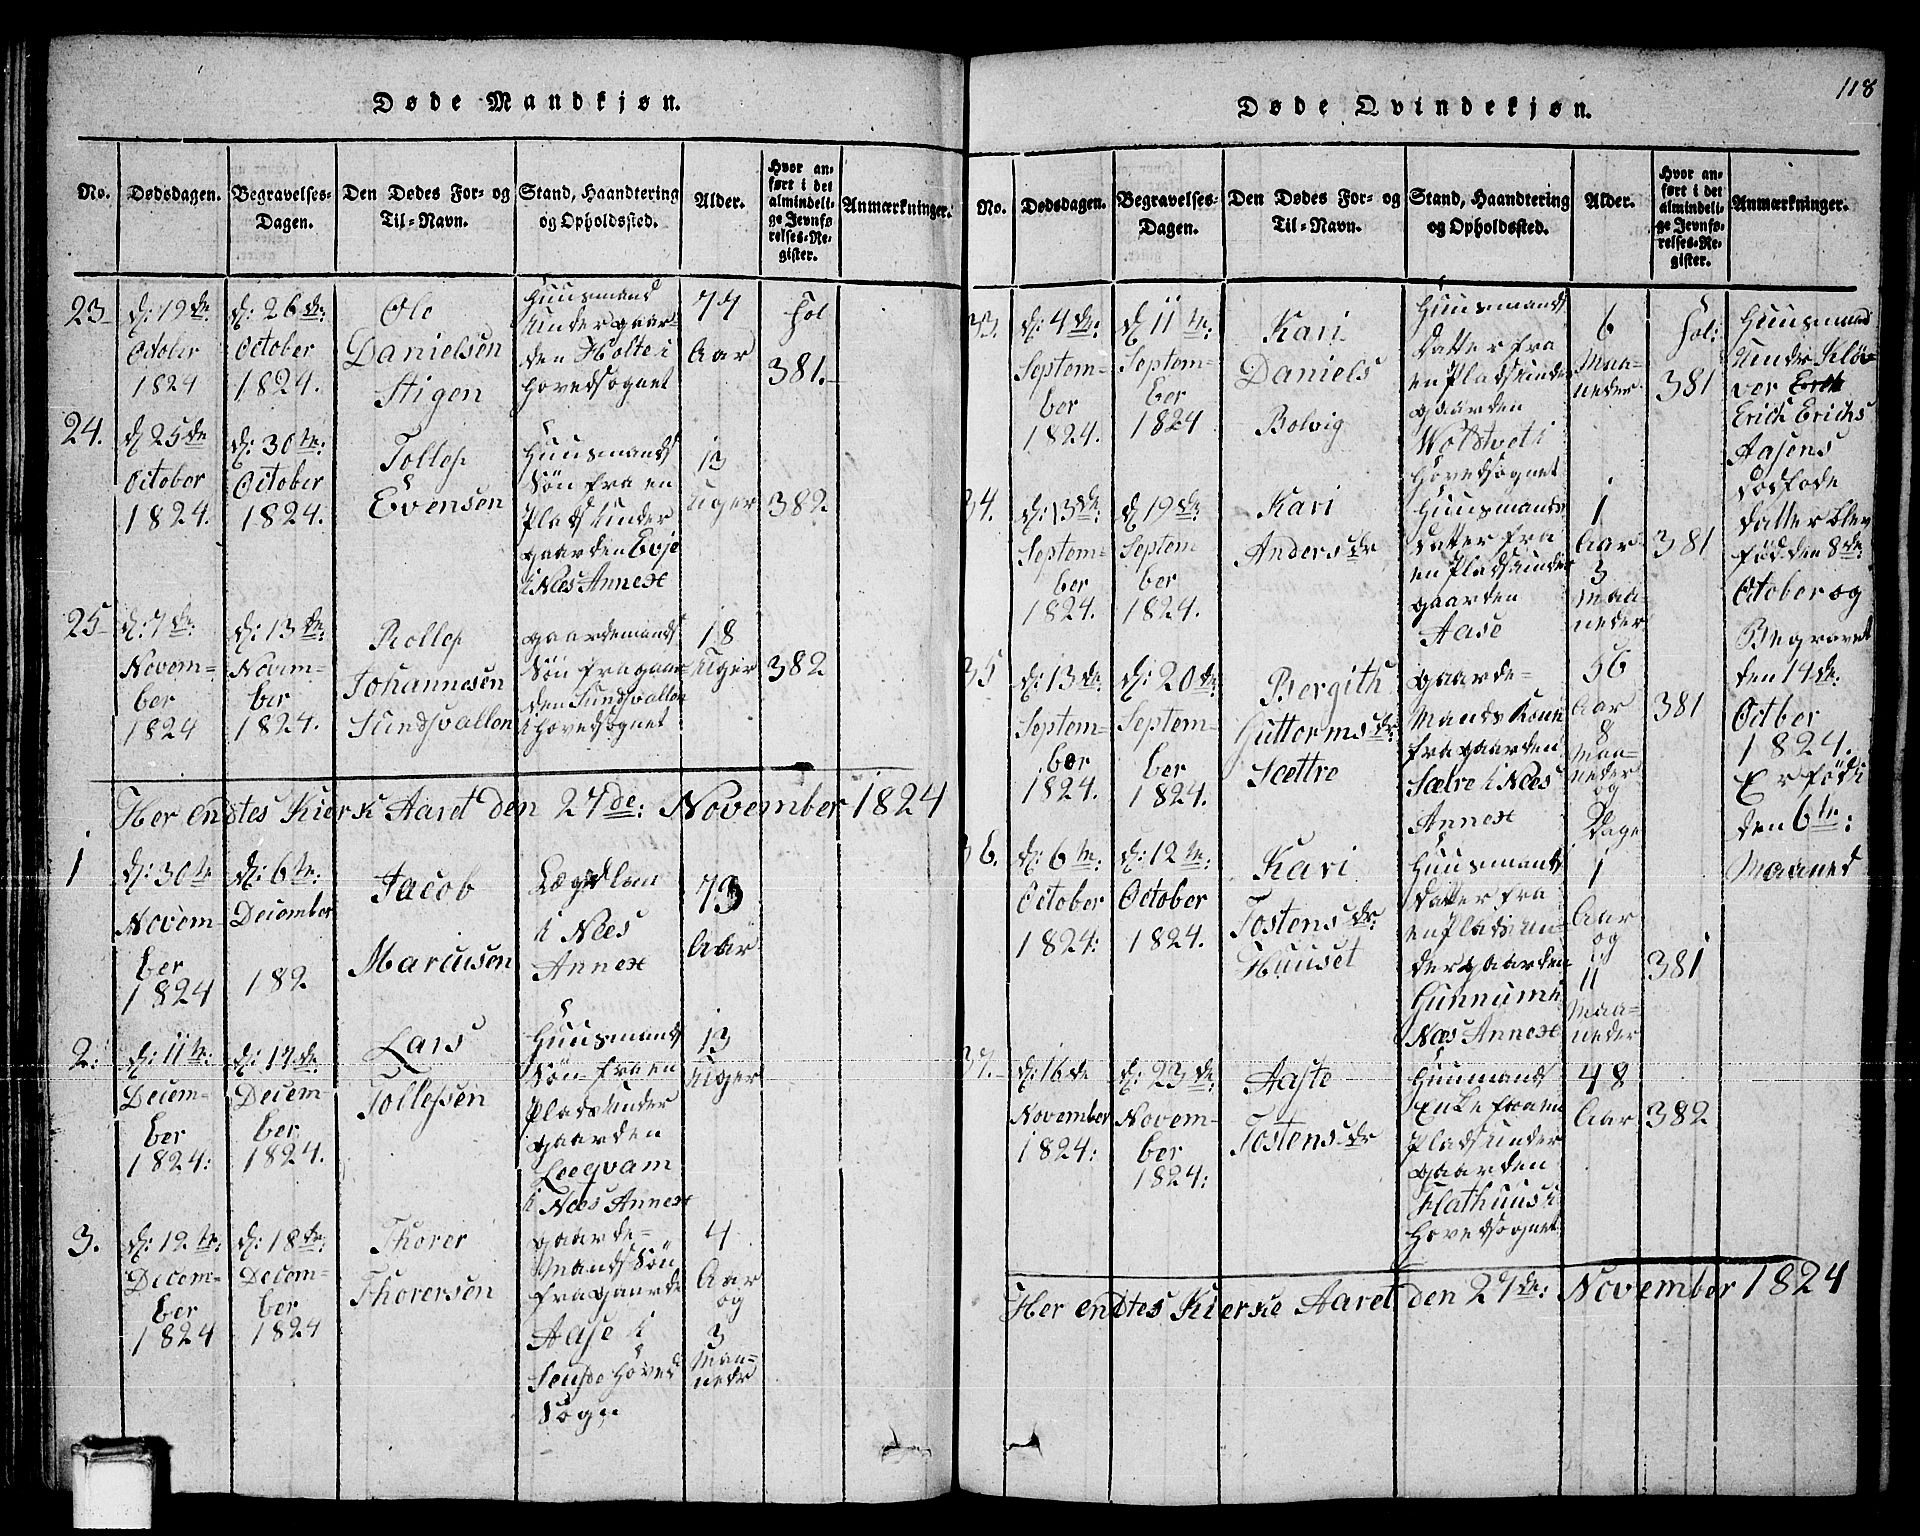 118
Døde Mandkjøn.
No.
Dødsdagen.
Begravelses-
Dagen.
Den Dødes For- og
Til-Navn.
Stand, Haandtering
og Opholdssted.
Alder.
Hvor an-
ført i det
almindeli-
ge Jevnfø
relses-Re-
gister.
Anmærkninger.
23
d: 19de
October
1824
d: 26de:
October
1824.
Ole
Danielsen
Stigen
Huusmand
Under gaar-
den Holte i
Hovedsognet
77
Aar
Fol
381.
24.
d 25de
October
1824.
d: 30te:
October
1824.
Tollef
Evensen
Huusmands
Søn fra en
Plads Under
gaarden Evje
i Næs Annex
13
Uger
382
25
d: 7de:
Novem-
ber
1824
d: 13de:
Novem-
ber
1824.
Rollef
Johannesen
Sundsvallen
gaardemands
Søn fra gaar-
den Sundsvallen
i Hovedsognet
18
Uger
382
Her endtes Kierke Aaret den 27de: November 1824
1
d: 30te
Novem-
ber
1824
d: 6te:
December
182
Jacob
Marcusen
Lægdlem
i Næs
Annex
73
Aar
2:
d: 11te:
Decem-
ber
1824:
d: 17de
Decem-
ber
1824.
Lars
Tollefsen
Huusmands
Søn fra en
Plads Under
gaarden
Leeqvam
i Næs Annex
13
Uger
3.
d: 12te:
Decem-
ber
1824
d: 18de:
Decem-
ber
1824
Thorer
Thorersen
gaarde-
Mands Søn
fra gaarde
Aase i
Hoved
Sogn
4
Aar
og
3
Maa-
neder
Døde Qvindekjøn.
No.
Dødsdagen.
Begravelses-
Dagen.
Den Dødes For- og
Til-Navn.
Stand, Haandtering
og Opholdssted.
Alder.
Hvor an-
ført i det
almindeli-
ge Jevnfø-
relses-Re-
gister.
Anmærkninger.
33.
d: 4de:
Septem-
ber
1824.
d 11te:
Septem-
ber
1824
Kari
Daniels
Bolvig
Huusmands
Datter fra
en Plads Under
gaarden
Woldtvet i
Hovedsognet
6
Maa-
neder
Fol:
381
Huusmand
Under Klø-
ver Erik
Erich Erichs
Aasens
dødføde
datter blev
fød den 8de:
October og
Begravet
den 14de:
Octber
1824.
Er født i
den 6te:
Maaned
34.
d: 13de:
Septem-
ber
1824.
d 19de:
Septem
ber
1824.
Kari
Andersdr
Huusmands
Datter fra
en Plads under
gaarden
Aase
1
Aar
3
Maa-
neder
381
35
d: 13de:
Septem-
ber
1824.
d: 20de:
Septem-
ber
1824.
Bergith
Guttormsdr:
Sættre
gaarde-
Mands Kone
fra gaarden
Sætre i Næs
Annex
56
Aar
8
Maa-
neder
og
Dage
381
36.
d: 6te:
October
1824:
d: 12te:
October
1824.
Kari
Tostensdr:
Huuset
Huusmands
Datter fra
en Plads Un-
der gaarden
Gunnum i
Næs Annex
1
Aar
og
11
Maa-
neder
381
37.
d: 16de
November
1824:
d: 23de:
Novem-
ber
1824:
Aaste
Tostensdr
Huumands
Enke fra en
Plads under
gaarden
Flathuus i
Hovedsognet
48
Aar
382
Her endtes Kierke Aaret den 27de: November 1824